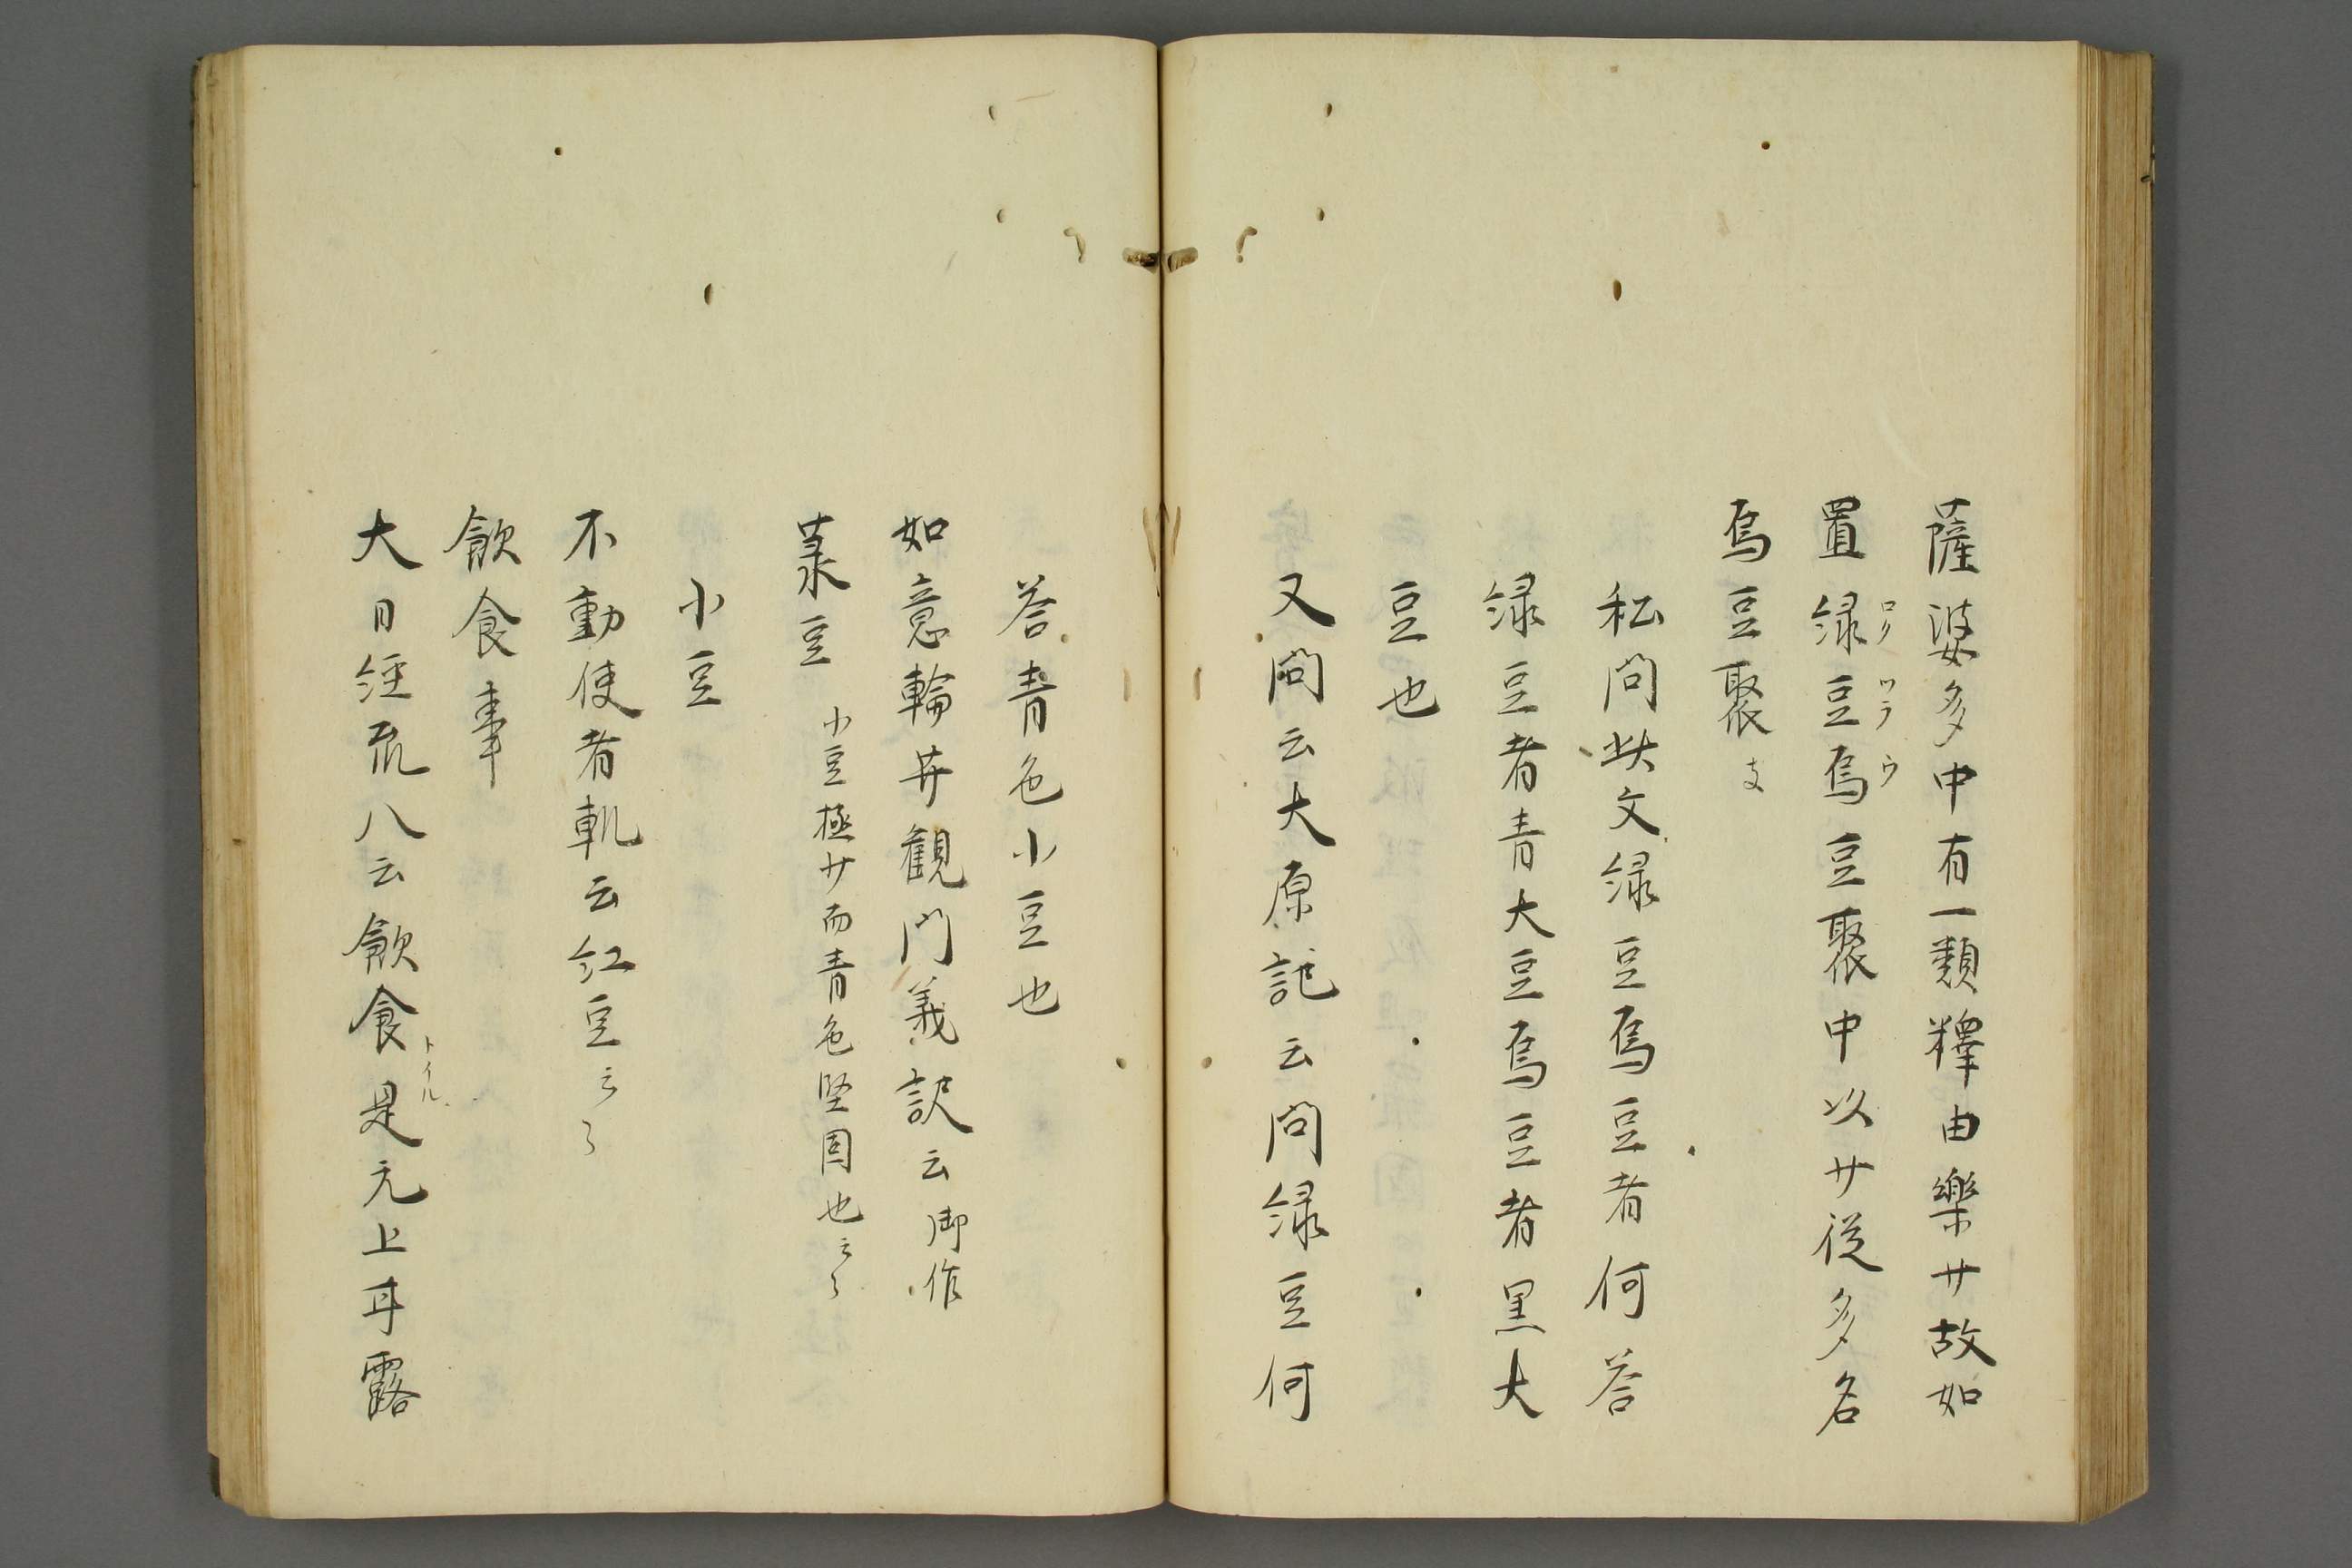 薩婆多中有一類釋由樂廾故如
置緑豆烏豆聚中以廾従多名
ロクツラウ
烏豆聚文
私問此文緑豆烏豆者何答
緑豆者青大豆烏豆者黒大
豆也
又問云大原記云問緑豆何
答青色小豆也
如意輪并觀門義訳云御作
菉豆小豆極廾而青色堅固也云々
小豆
不動使者軌云紅豆云々
飲食事
大日経疏八云飲食是无上甘露
トイハ